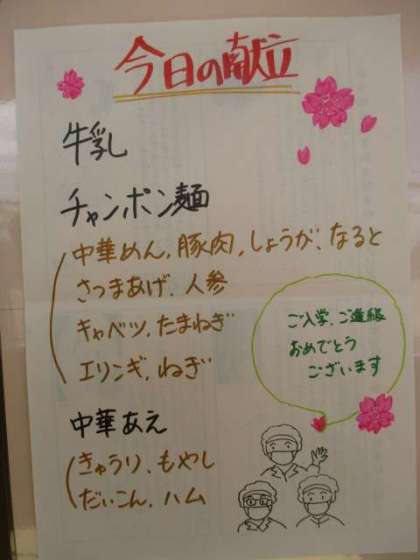 今日の献立
牛乳
チャンポン麺
中華めん,豚肉,しょうが、なると
さつまあげ、人参
キャベツ,たまねぎ
エリンギ,ねぎ
ご入学、ご進級
おめでとう
ございます
中華あえ
きゅうり、もやし
だいこん、ハム